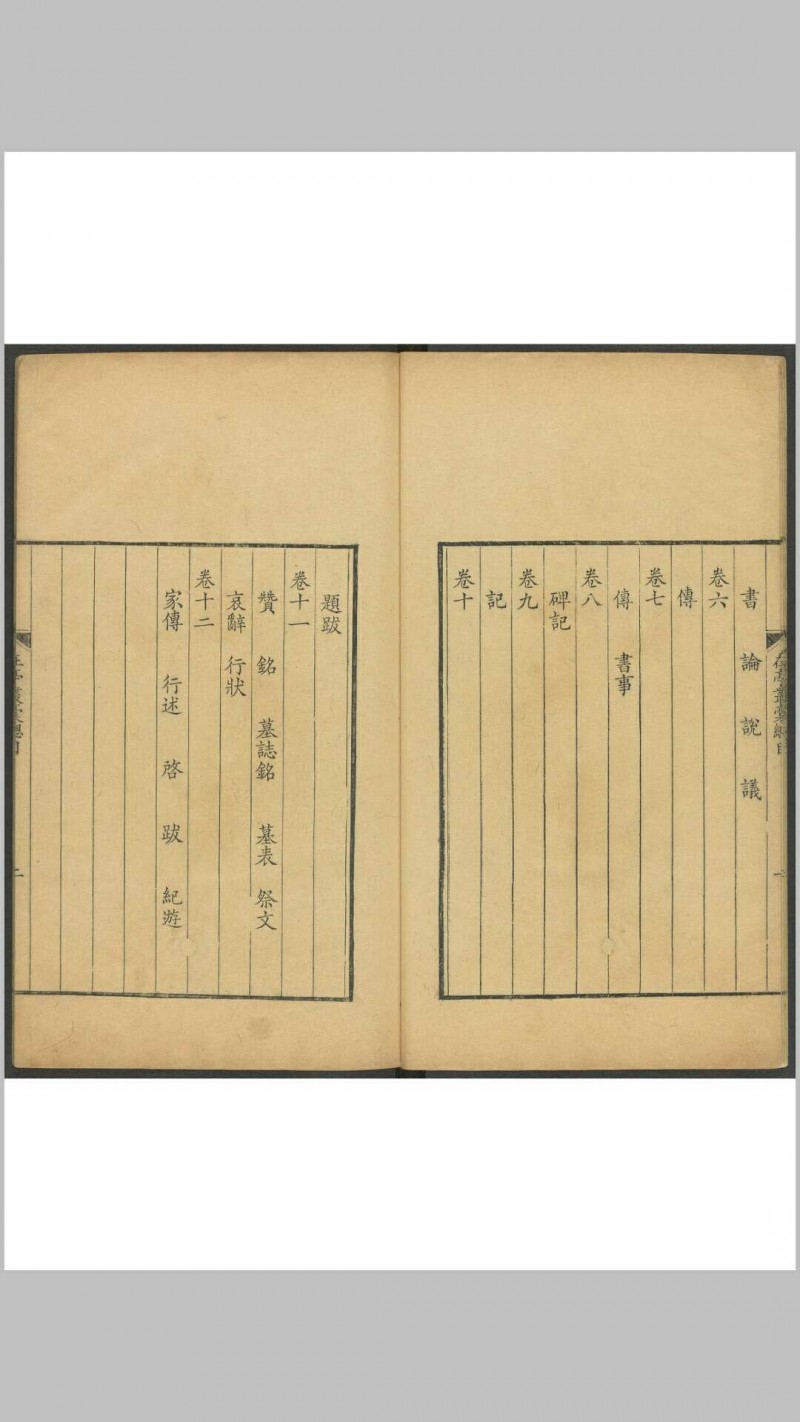 書 論 說 議
卷六
傳
卷七
傳 書事
卷八
碑記
卷九
記
卷十
題跋
卷十一
贊 銘 墓誌銘 墓表 祭文
哀辭 行狀
卷十二
家傳 行述 啓 跋 紀遊